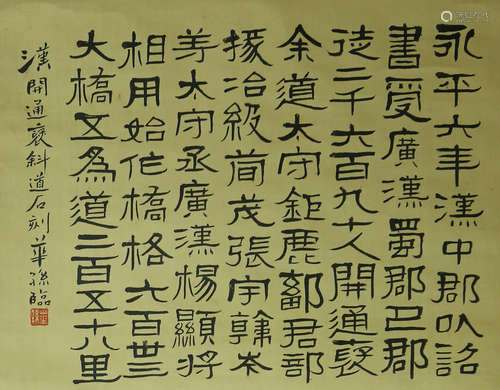 永平六年漢中郡以詔
書受廣漢蜀郡巴郡
徒二千六百九十人開通褒
余道太守鉅鹿鄐君部
掾冶級荀茂張宇韓岑
太守丞廣漢楊顯將
相用始作橋格六百卅三
大橋五為道二百五十八里
漢開通褒斜道石刻華孫臨